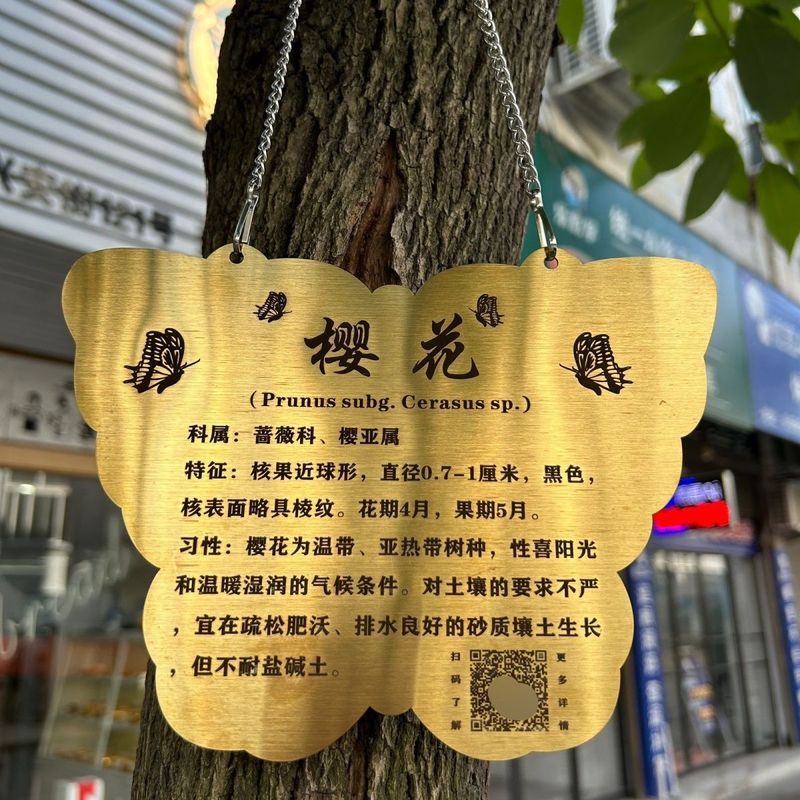 樱花
(Prunus subg. Cerasus sp.)
科属：蔷薇科、樱亚属
特征：核果近球形，直径0.7-1厘米，黑色，
核表面略具棱纹。花期4月，果期5月。
习性：樱花为温带、亚热带树种，性喜阳光
和温暖湿润的气候条件。对土壤的要求不严
，宜在疏松肥沃、排水良好的砂质壤土生长
，但不耐盐碱土。
扫码了解
更多详情